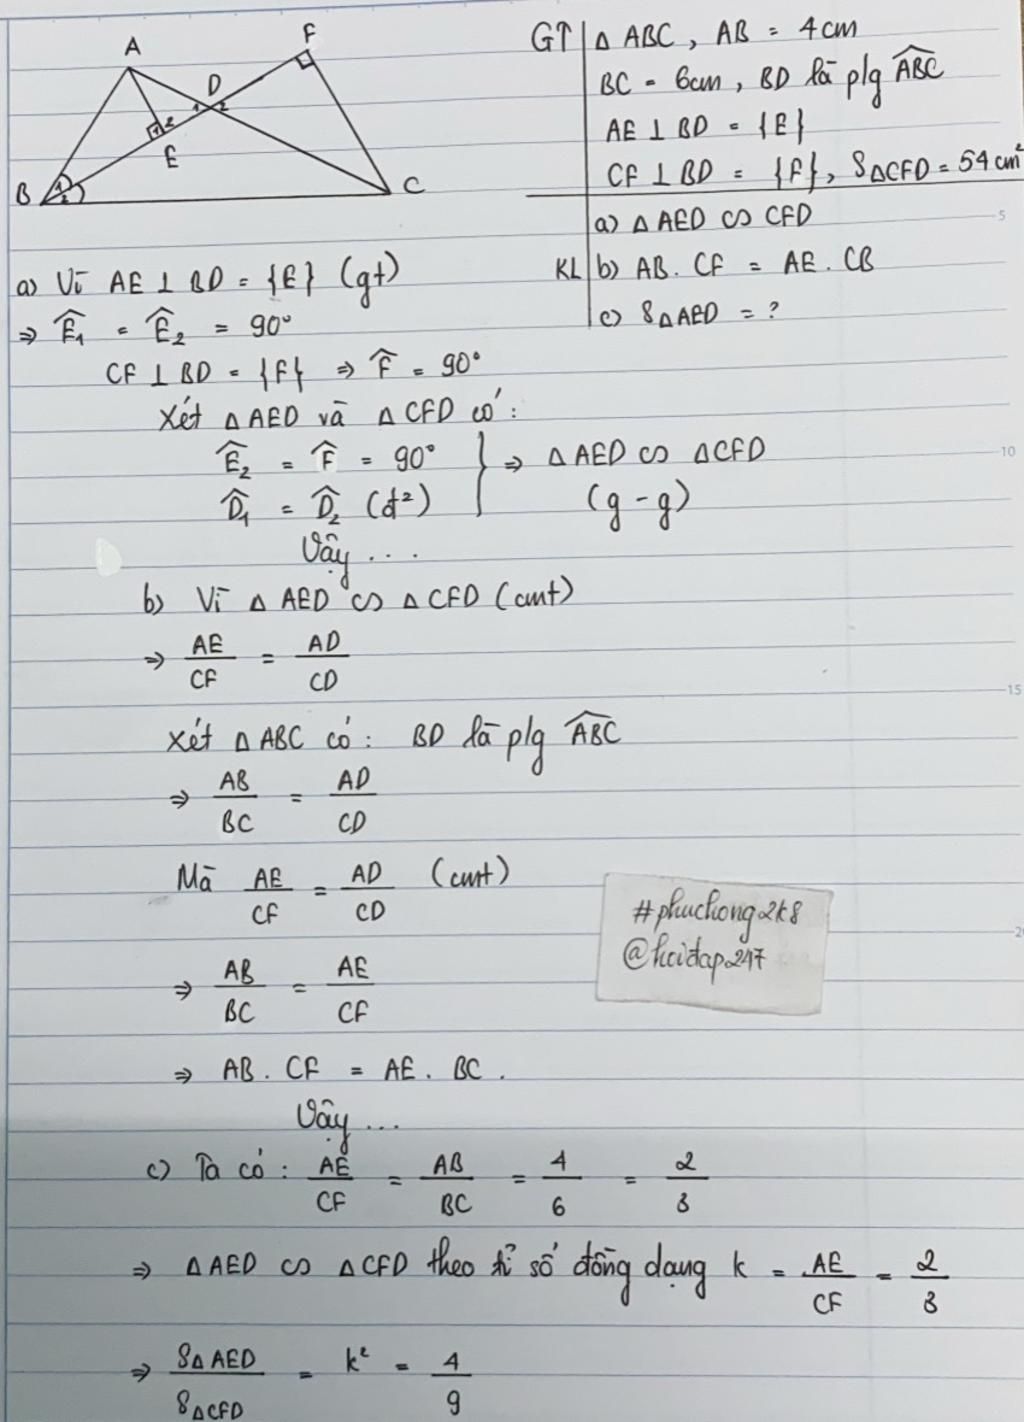 A
F
D
1
2
1
2
E
B
1
2
C
GT | △ ABC, AB = 4cm
BC = 6cm, BD là p/g \widehat{ABC}
AE ⊥ BD = {E}
CF ⊥ BD = {F}, S△CFD = 54 cm²
a) △ AED ∽ CFD
KL | b) AB. CF = AE. CB
c) S△AED = ?
a) Vì AE ⊥ BD = {E} (gt)
⇒ \widehat{E}₁ = \widehat{E}₂ = 90°
CF ⊥ BD = {F} ⇒ \widehat{F} = 90°
Xét △ AED và △ CFD có:
\widehat{E}₂ = \widehat{F} = 90° } ⇒ △ AED ∽ △CFD
\widehat{D}₁ = \widehat{D}₂ (đ²) (g - g)
Vậy ...
b) Vì △ AED ∽ △ CFD (cmt)
⇒ AE/CF = AD/CD
Xét △ ABC có: BD là p/g \widehat{ABC}
⇒ AB/BC = AD/CD
Mà AE/CF = AD/CD (cmt)
#phuchong2k8
@hoidap247
⇒ AB/BC = AE/CF
⇒ AB. CF = AE. BC.
Vậy ...
c) Ta có: AE/CF = AB/BC = 4/6 = 2/3
⇒ △AED ∽ △CFD theo tỉ số đồng dạng k = AE/CF = 2/3
⇒ S△AED/S△CFD = k² = 4/9
5
10
15